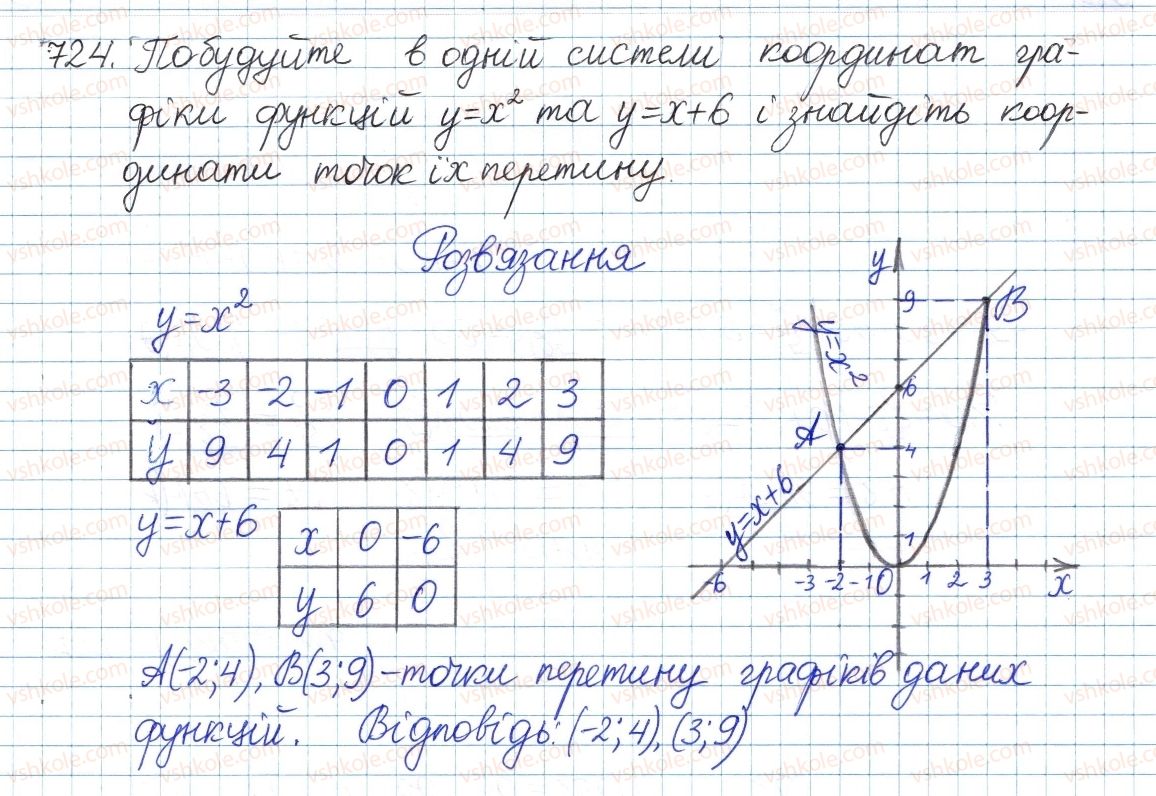 724. Побудуйте в одній системі координат гра-
фіки функцій y=x² та y=x+6 і знайдіть коор-
динати точок їх перетину.
Розв'язання
y=x²
x -3 -2 -1 0 1 2 3
y 9 4 1 0 1 4 9
y=x+6
x 0 -6
y 6 0
y
9
B
y=x²
6
A
4
y=x+6
1
-6 -3 -2 -1 0 1 2 3 x
A(-2;4), B(3;9) – точки перетину графіків даних
функцій. Відповідь: (-2;4), (3;9)
vshkole.com